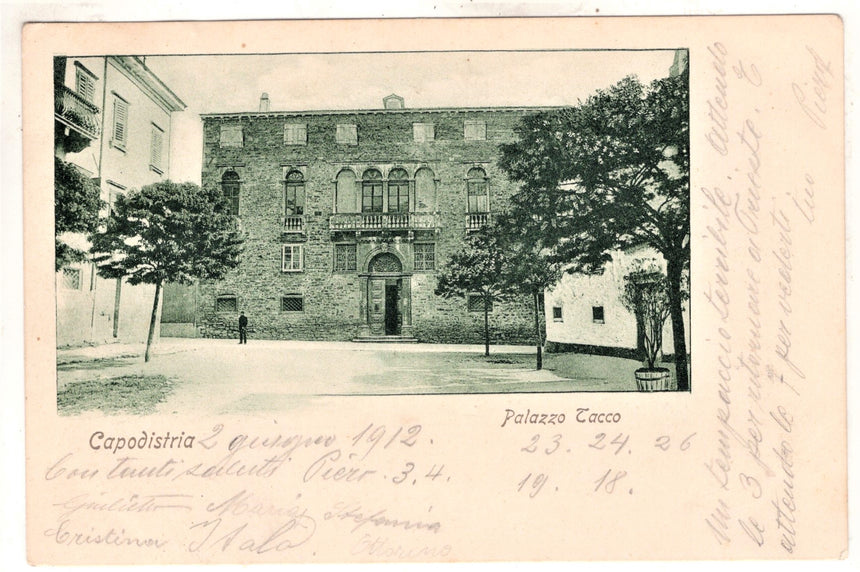 Palazzo Tacco
Capodistria 2 giugno 1912.
23. 24. 26
Con tanti saluti Piero. 3.4.
19. 18.
Giulietta Maria Stefania
Cristina Itala. Ottorino
Un tempaccio terribile attendo
le 3 per ritornare a Trieste. E
attendo le 7 per vederti
tuo Piero